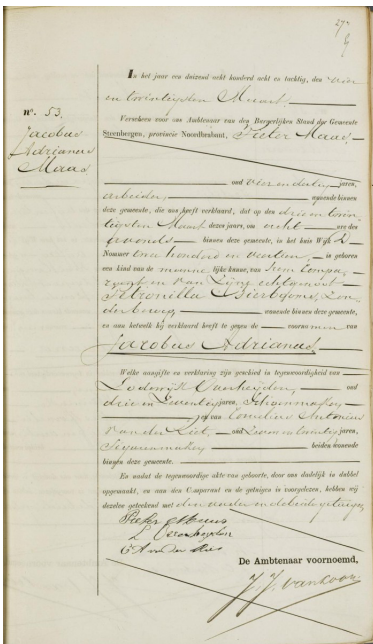 In het jaar een duizend acht honderd acht en tachtig, den vier
en twintigsten Maart.
nº. 53.
Jacobus
Adrianus
Maas
Verscheen voor ons Ambtenaar van den Burgerlijken Stand der Gemeente
Steenbergen, provincie Noordbrabant, Pieter Maas,
oud vier en dertig jaren,
arbeider, wonende binnen
deze gemeente, die ons heeft verklaard, dat op den drie en twin-
tigsten Maart dezes jaars, om acht ure des
avonds binnen deze gemeente, in het huis Wijk
Nommer twee honderd en veertien, is geboren
een kind van de mannelijke kunne, van hem Compa-
rant en van Zijne echtgenoot
Petronella
wonende binnen deze gemeente,
en aan hetwelk hij verklaard heeft te geven de voornamen van
Jacobus Adrianus.
Welke aangifte en verklaring zijn geschied in tegenwoordigheid van
Lodewijk oud
drie en Zeventig jaren, Schoenmaker
en van Cornelis Antonius
van der Riet, oud Zeven en twintig jaren,
Sigarenmaker beiden wonende
binnen deze gemeente.
En nadat de tegenwoordige akte van geboorte, door ons dadelijk in dubbel
opgemaakt, en aan den Comparant en de getuigen is voorgelezen, hebben wij
dezelve geteekend met den vader en de beide getuigen
Pieter Maas
De Ambtenaar voornoemd,